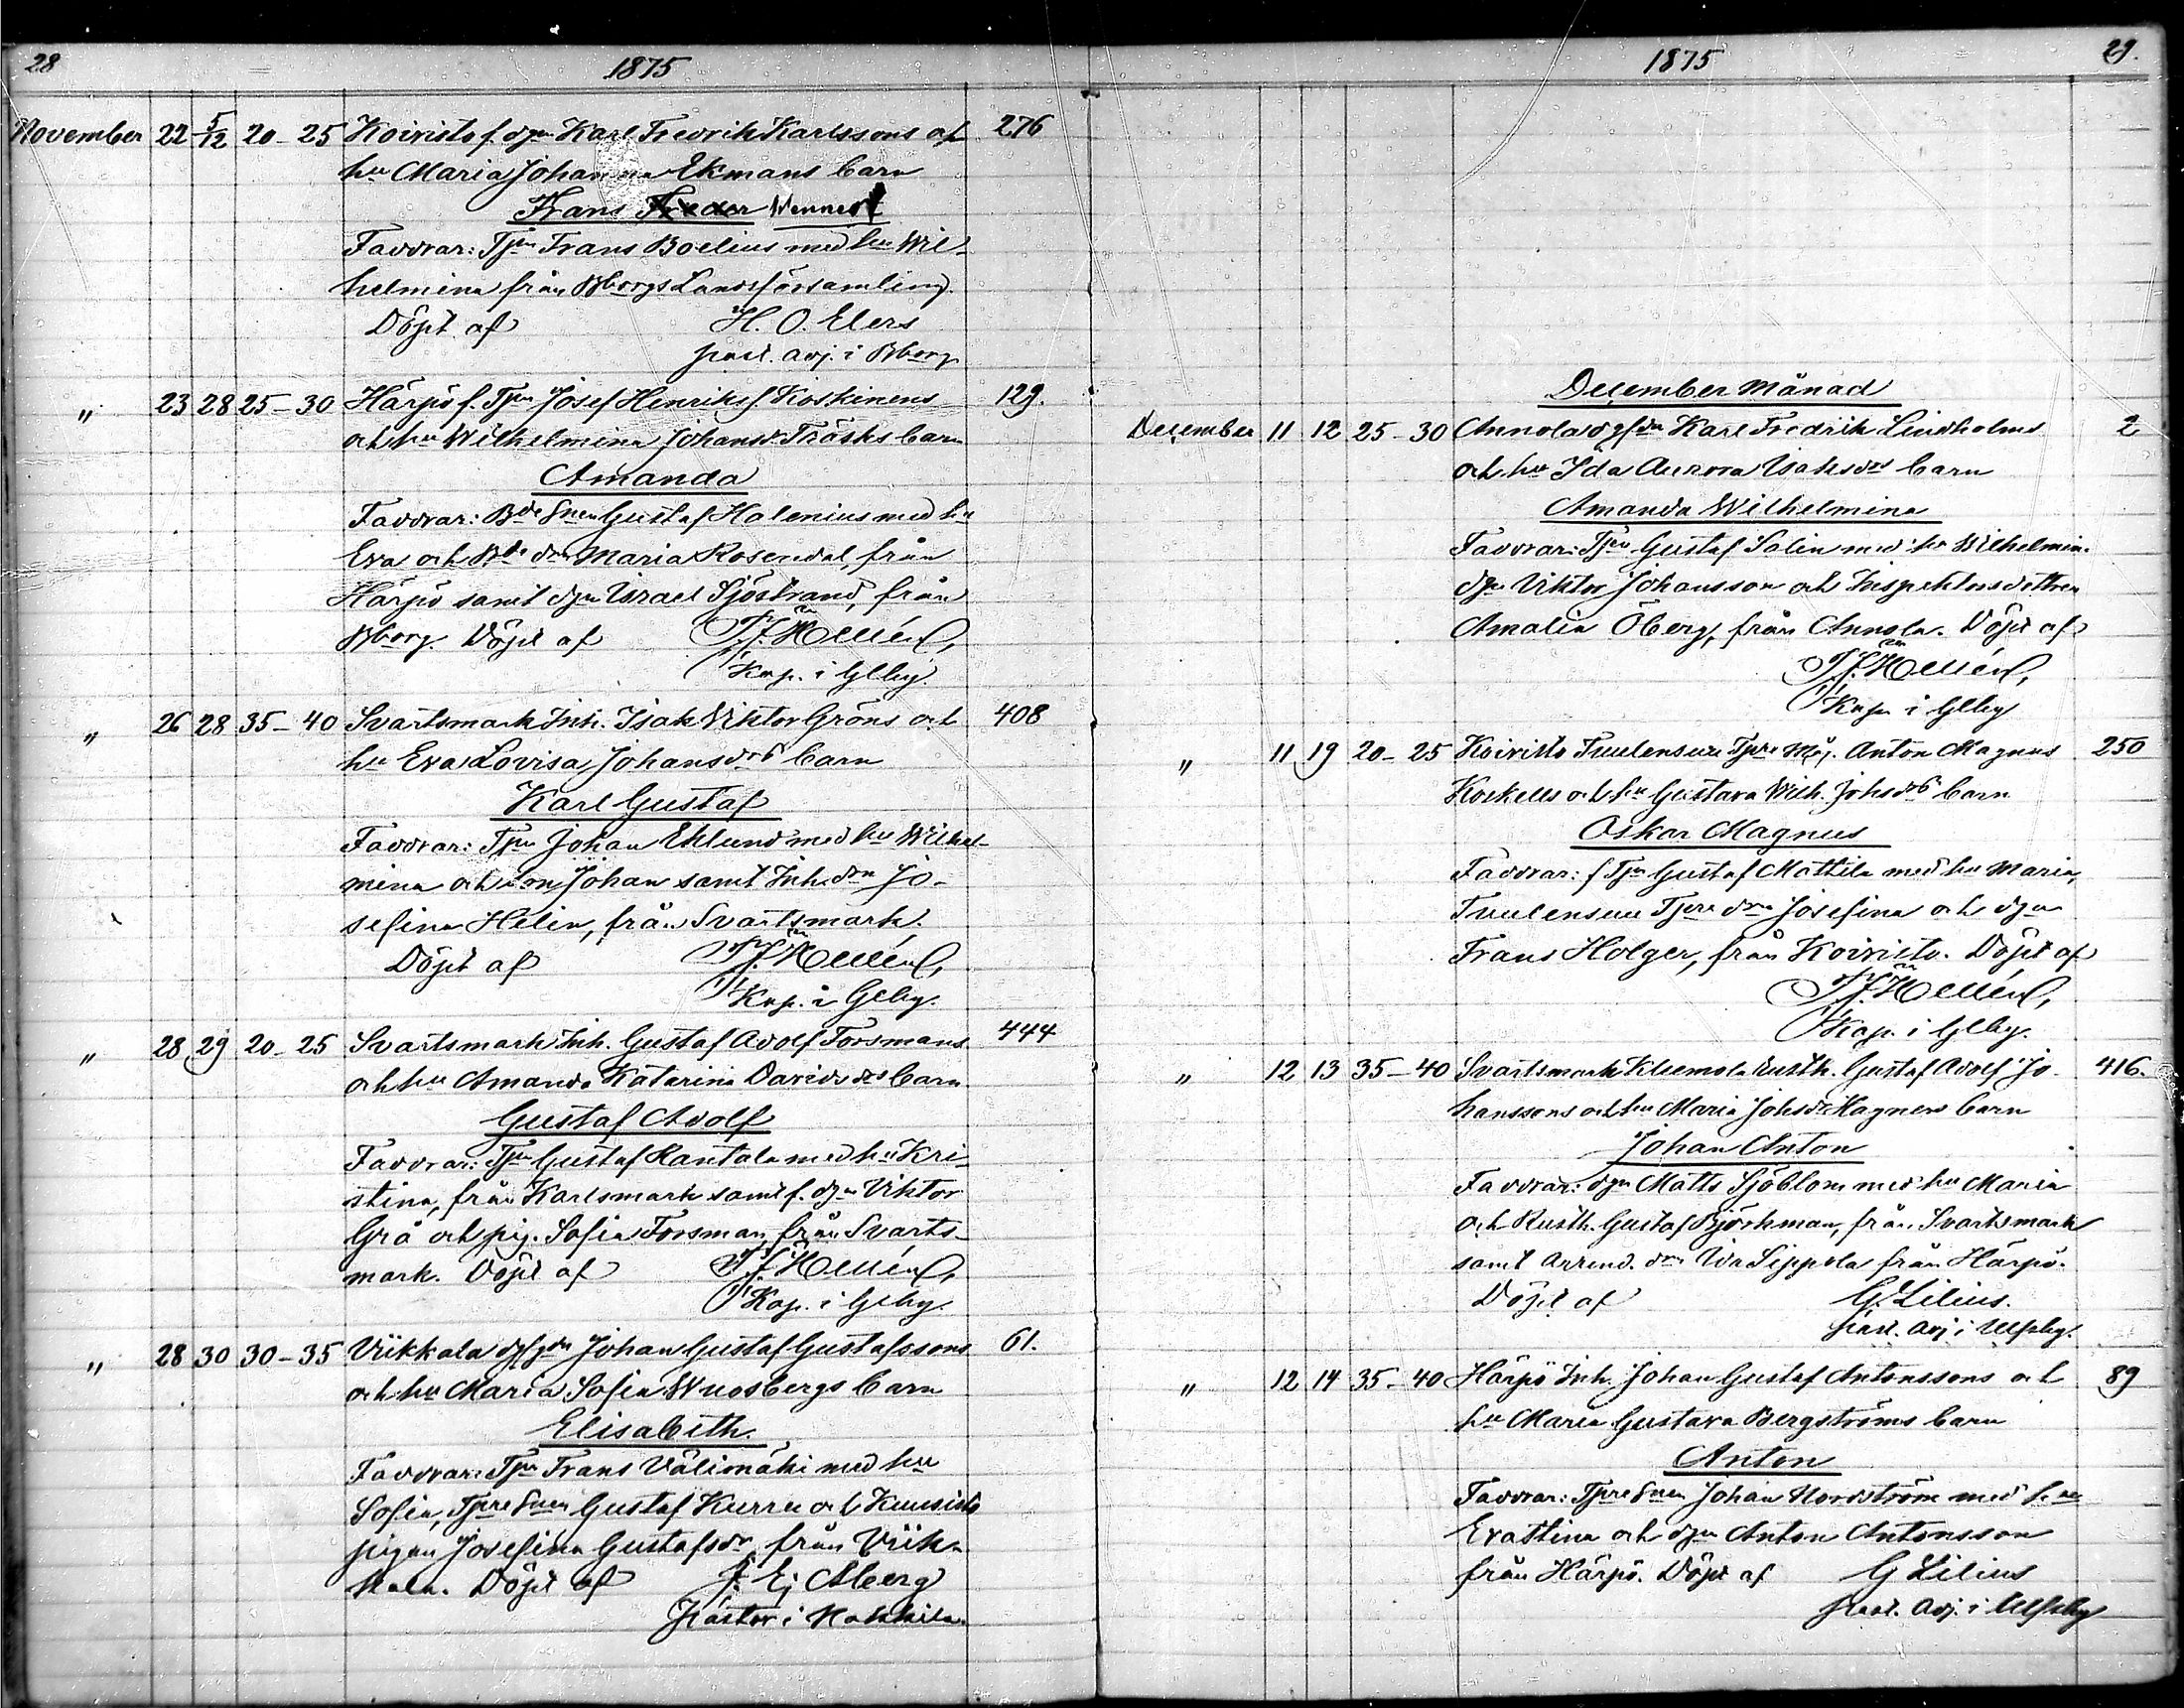 28 1875
November 22 5/12 20-25 Koivisto f. dgn Karl Fredrik Karlssons och 276
hu Maria Johanna Ekmans barn
Frans Wenner
Faddrar: Tjn Frans Boelius med hu Wil-
helmina från Bborgs Landsförsamling.
Döpt af H. O. Elers
past. adj. i Bborg
" 23 28 25-30 Härpö f. Tjn Josef Henrikss. Koskinens 129.
och hu Wilhelmina Johansdr Träsks barn
Amanda
Faddrar: Bde Snen Gustaf Holenius med hu
Eva och Bde drn Maria Rosendal, från
Härpö samt dgn Israel Sjöstrand, från
Bborg. Döpt af
Kap. i Glby.
" 26 28 35-40 Svartsmark Inh. Isak Viktor Gröns och 408
hu Eva Lovisa Johansdrs barn
Karl Gustaf
Faddrar: Tjn Johan Eklund med hu Wilhel-
mina och son Johan samt Inh. drn Jo-
sefina Helin, från Svartsmark.
Döpt af
Kap. i Glby.
" 28 29 20-25 Svartsmark Inh. Gustaf Adolf Forsmans 444
och hu Amanda Katarina Davidsdrs barn
Gustaf Adolf
Faddrar: Tjn Gustaf Rantala med hu Kri-
stina, från Karlsmark samt f. dgn Viktor
Grå och pig. Sofia Forsman, från Svarts-
mark. Döpt af
Kap. i Glby.
" 28 30 30-35 Viikkala Johan Gustaf Gustafssons 61.
och hu Maria Sofia Wuosbergs barn
Elisabeth.
Faddrar: Tjn Frans Välimäki med hu
Sofia, Tjre Snen Gustaf Kurru och Kuusisto
pigan Josefina Gustafsdr, från Viik-
kala. Döpt af J. Ej Aberg
Pastor i Nakkila.
1875 29.
December Månad
December 11 12 25-30 Annola Karl Fredrik Lindholms 2
och hu Ida Aurora Isaksdrs barn
Amanda Wilhelmina
Faddrar: Tjn Gustaf Salin med hu Wilhelmin.
dgn Viktor Johansson och Inspektorsdottren
Amalia Öberg, från Annola. Döpt af
Kap. i Glby
" 11 19 20-25 Koivisto Tuulensuu Tjre Måg. Anton Magnus 250
Kockells och hu Gustava Wilh. Johsdrs barn
Oskar Magnus
Faddrar: f Tjn Gustaf Mattila med hu Maria,
Tuulensuu Tjre drn Josefina och dgn
Frans Holger, från Koivisto. Döpt af
Kap. i Glby.
" 12 13 35-40 Svartsmark Kleemola Rusth. Gustaf Adolf Jo- 416.
hanssons och hu Maria Johsdr Hagners barn
Johan Anton
Faddrar: dgn Matts Sjöblom med hu Maria
och Rusth. Gustaf Björkman, från Svartsmark
samt Arrend. drn Ida Sippola från Härpö.
Döpt af G. Lilius.
past. adj i Ulfsby.
" 12 14 35-40 Härpö Inh. Johan Gustaf Antonssons och 89
hu Maria Gustava Bergströms barn
Anton
Faddrar: Tjre Snen Johan Nordström med hu
Evastina och dgn Anton Antonsson
från Härpö. Döpt af G Lilius
past. adj. i Ulfsby